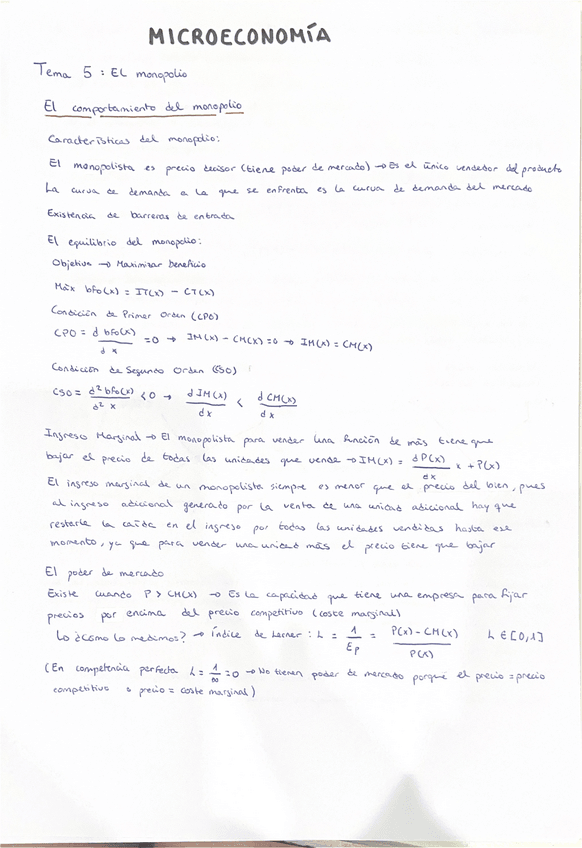 MICROECONOMÍA
Tema 5: El monopolio
El comportamiento del monopolio
Características del monopolio:
El monopolista es precio decisor (tiene poder de mercado) → Es el único vendedor del producto
La curva de demanda a la que se enfrenta es la curva de demanda del mercado
Existencia de barreras de entrada
El equilibrio del monopolio:
Objetivo → Maximizar beneficio
Máx bfo(x) = IT(x) - CT(x)
Condición de Primer Orden (CPO)
CPO = d bfo(x) / d x = 0 → IM(x) - CM(x) = 0 → IM(x) = CM(x)
Condición de Segundo Orden (CSO)
CSO = d² bfo(x) / d² x < 0 → d IM(x) / dx < d CM(x) / dx
Ingreso Marginal → El monopolista para vender una función de más tiene que
bajar el precio de todas las unidades que vende → IM(x) = dP(x) / dx x + P(x)
El ingreso marginal de un monopolista siempre es menor que el precio del bien, pues
al ingreso adicional generado por la venta de una unidad adicional hay que
restarle la caída en el ingreso por todas las unidades vendidas hasta ese
momento, ya que para vender una unidad más el precio tiene que bajar
El poder de mercado
Existe cuando P > CM(x) → Es la capacidad que tiene una empresa para fijar
precios por encima del precio competitivo (coste marginal)
Lo ¿Cómo lo medimos? → Índice de Lerner: L = 1 / Ep = P(x) - CM(x) / P(x) L ∈ [0,1]
(En competencia perfecta L = 1/∞ = 0 → No tienen poder de mercado porque el precio = precio
competitivo o precio = coste marginal)